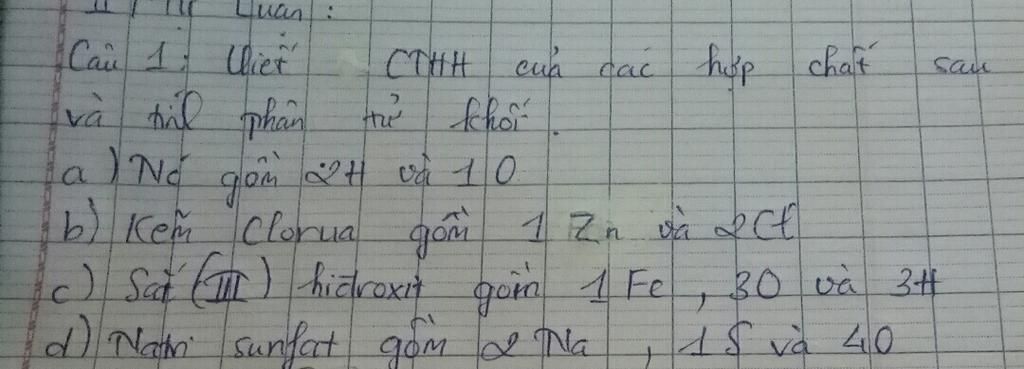 II Tự Luận :
Câu 1: Viết CTHH của các hợp chất sau
và tính phân tử khối.
a) Nước gồm 2H và 1O
b) Kẽm Clorua gồm 1 Zn và 2Cl
c) Sắt (III) hiđroxit gồm 1 Fe, 3O và 3H
d) Natri sunfat gồm 2 Na, 1S và 4O